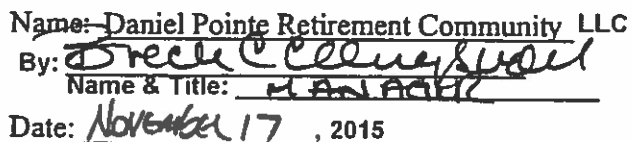 Name: Daniel Pointe Retirement Community LLC
By:
Name & Title: MANAGER
Date: NOVEMBER 17, 2015